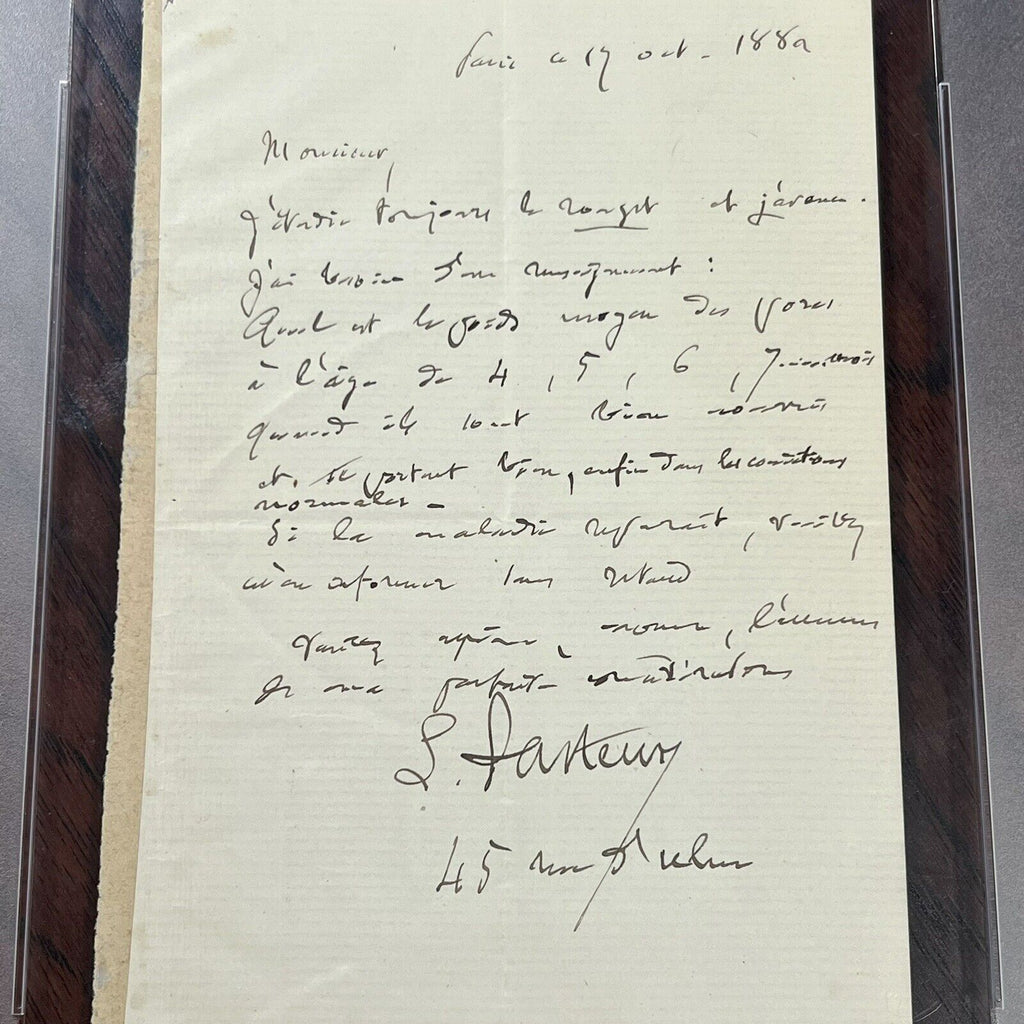 Paris ce 17 oct. 1882
Monsieur,
J'étudie toujours le rouget et j'avance.
J'ai besoin d'un renseignement :
Quel est le poids moyen des porcs
à l'âge de 4, 5, 6, 7 mois
quand ils sont bien nourris
et se portent bien, enfin dans les conditions
normales -
Si la maladie reparait, veuillez
m'en informer sans retard
Veuillez agréer, , l'assurance
de ma parfaite considération
L. Pasteur
45 rue d'Ulm